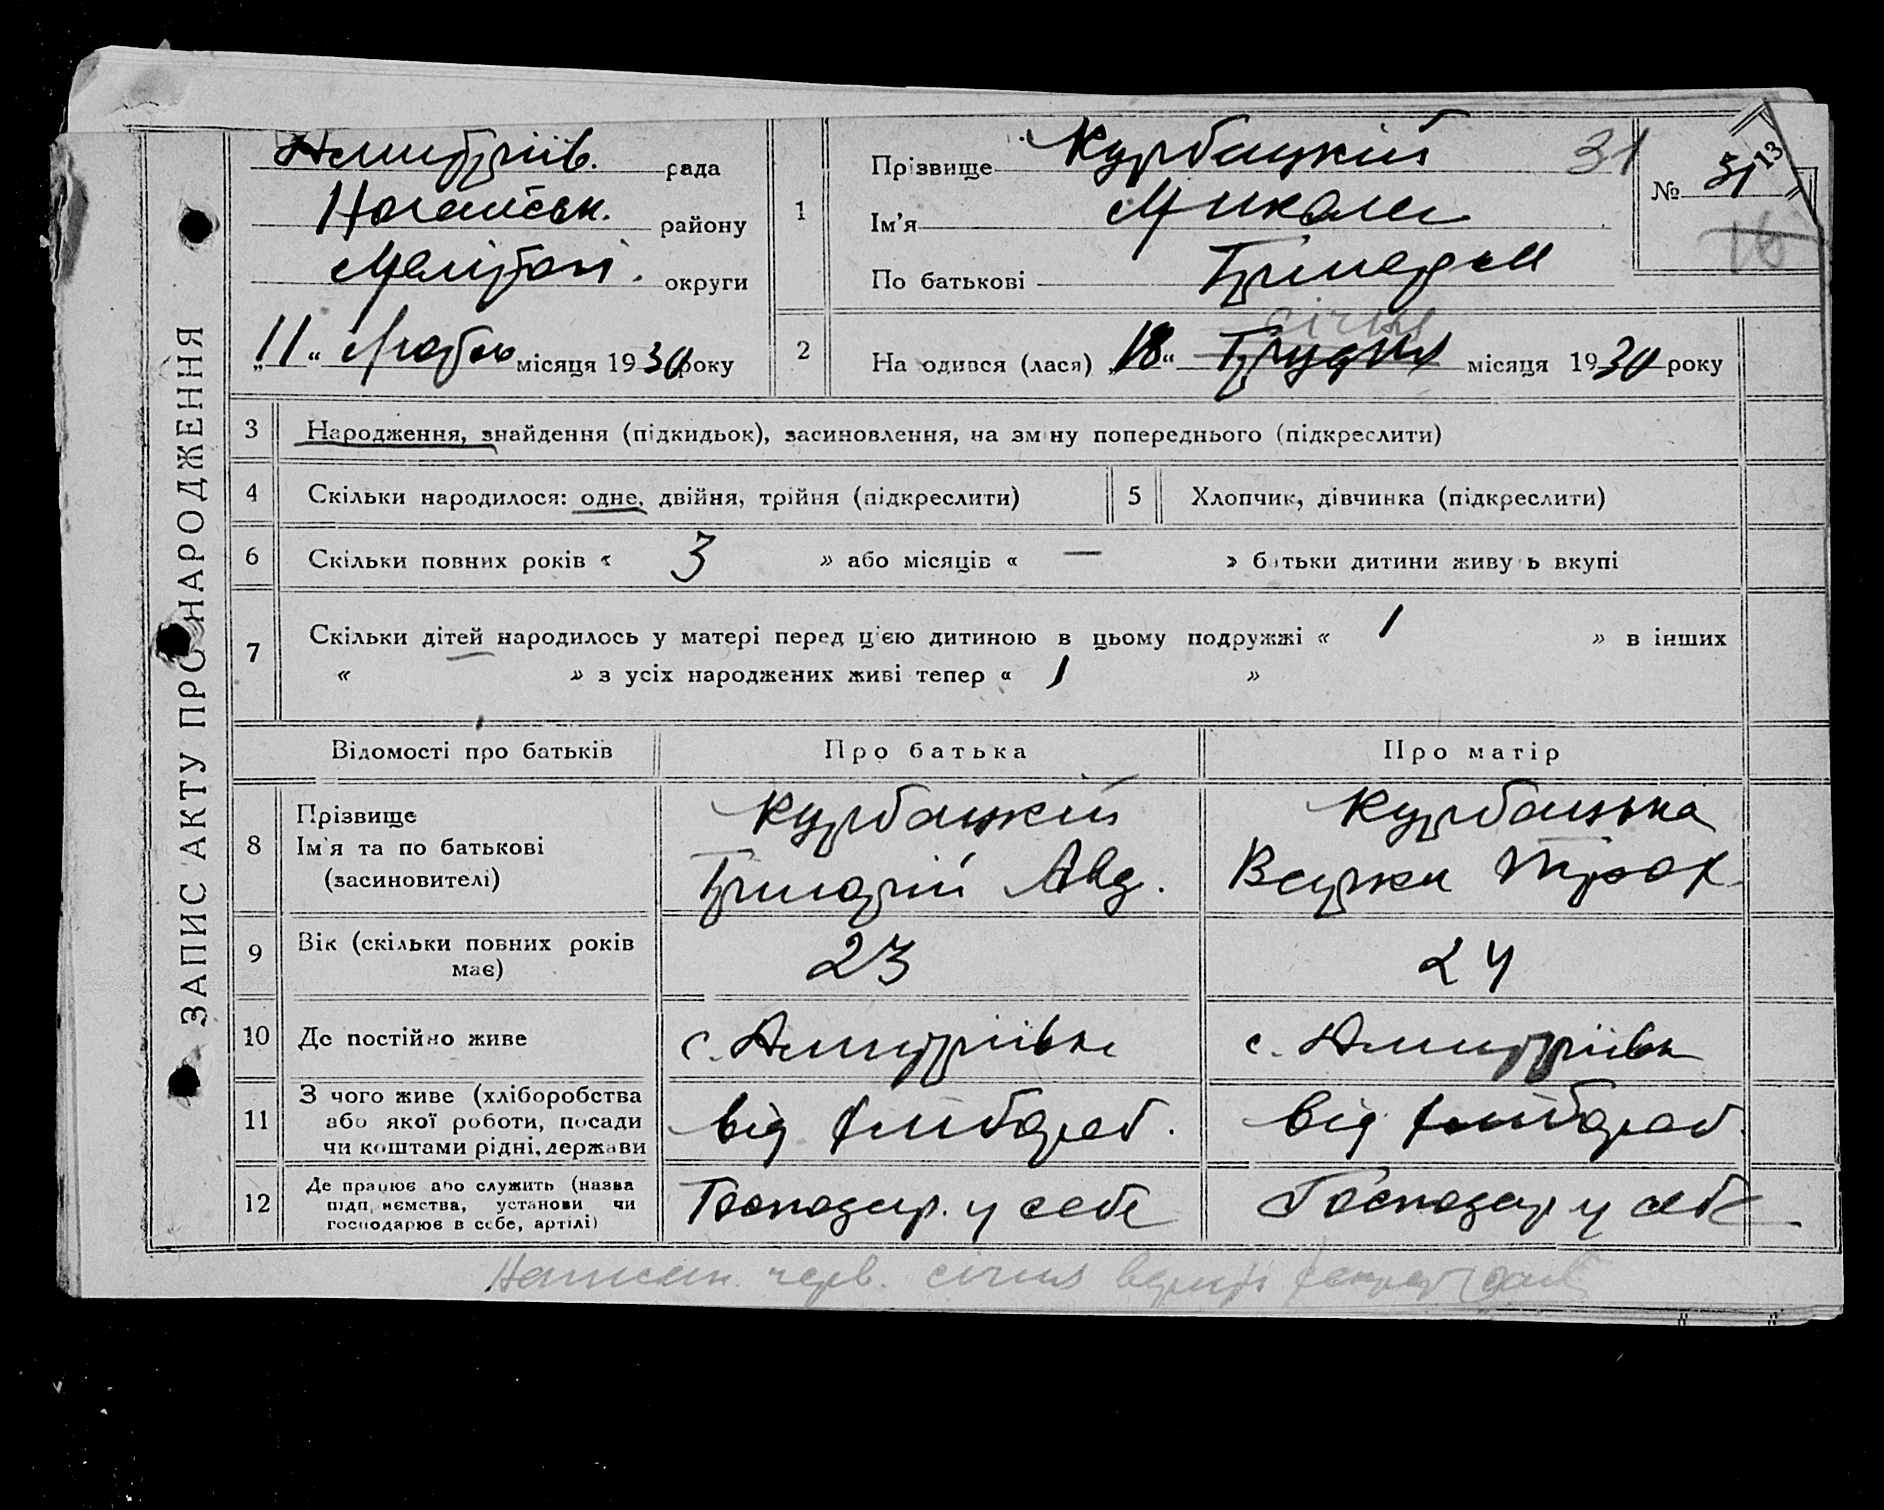 ЗАПИС АКТУ ПРО НАРОДЖЕННЯ
Дмитріїв. рада
Ногайськ. району
Мелітоп. округи
„11“ Лютого місяця 1930 року
1
Прізвище Курбацкій 31
Ім'я Микола
По батькові Григор
№ 31 13
16
2
січня
На одився (лася) „18“ Грудня місяця 1930 року
3 Народження, знайдення (підкидьок), засиновлення, на зміну попереднього (підкреслити)
4 Скільки народилося: одне, двійня, трійня (підкреслити) 5 Хлопчик, дівчинка (підкреслити)
6 Скільки повних років « 3 » або місяців « — » батьки дитини живуть вкупі
7 Скільки дітей народилось у матері перед ц'єю дитиною в цьому подружжі « 1 » в інших
« » з усіх народжених живі тепер « 1 »
Відомості про батьків Про батька Про матір
8 Прізвище Курбацкій Курбацька
Ім'я та по батькові Григорій Авд.
(засиновителі)
9 Вік (скільки повних років має) 23 24
10 Де постійно живе с. Дмитріївк с. Дмитріївк
11 З чого живе (хліборобства
або якої роботи, посади від хлібороб. від хлібороб.
чи коштами рідні, держави
12 Де працює або служить (назва
підприємства, установи чи Господар. у себе Господар у себе
господарює в себе, артілі)
Написан. черв. січня